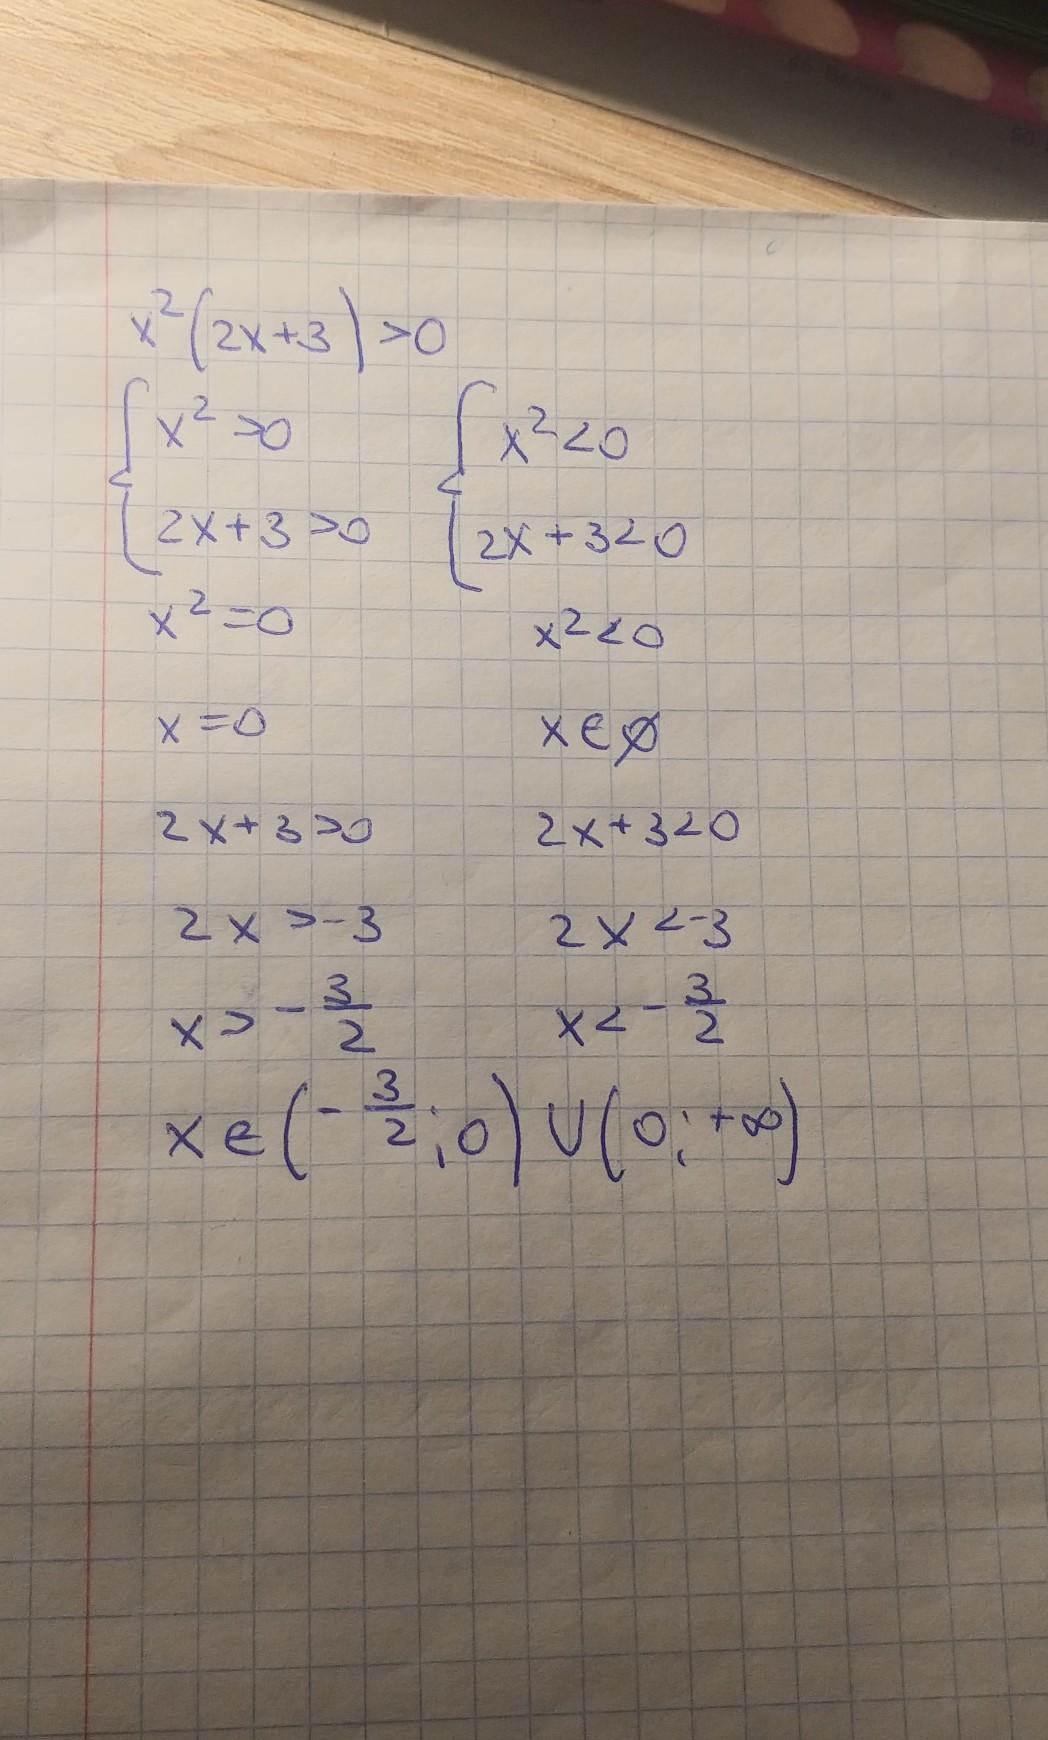 x²(2x+3)>0
{x²>0 {x²<0
{2x+3>0 {2x+3<0
x²=0 x²<0
x=0 x∈∅
2x+3>0 2x+3<0
2x>-3 2x<-3
x>-3/2 x<-3/2
x∈(-3/2;0)∪(0;+∞)